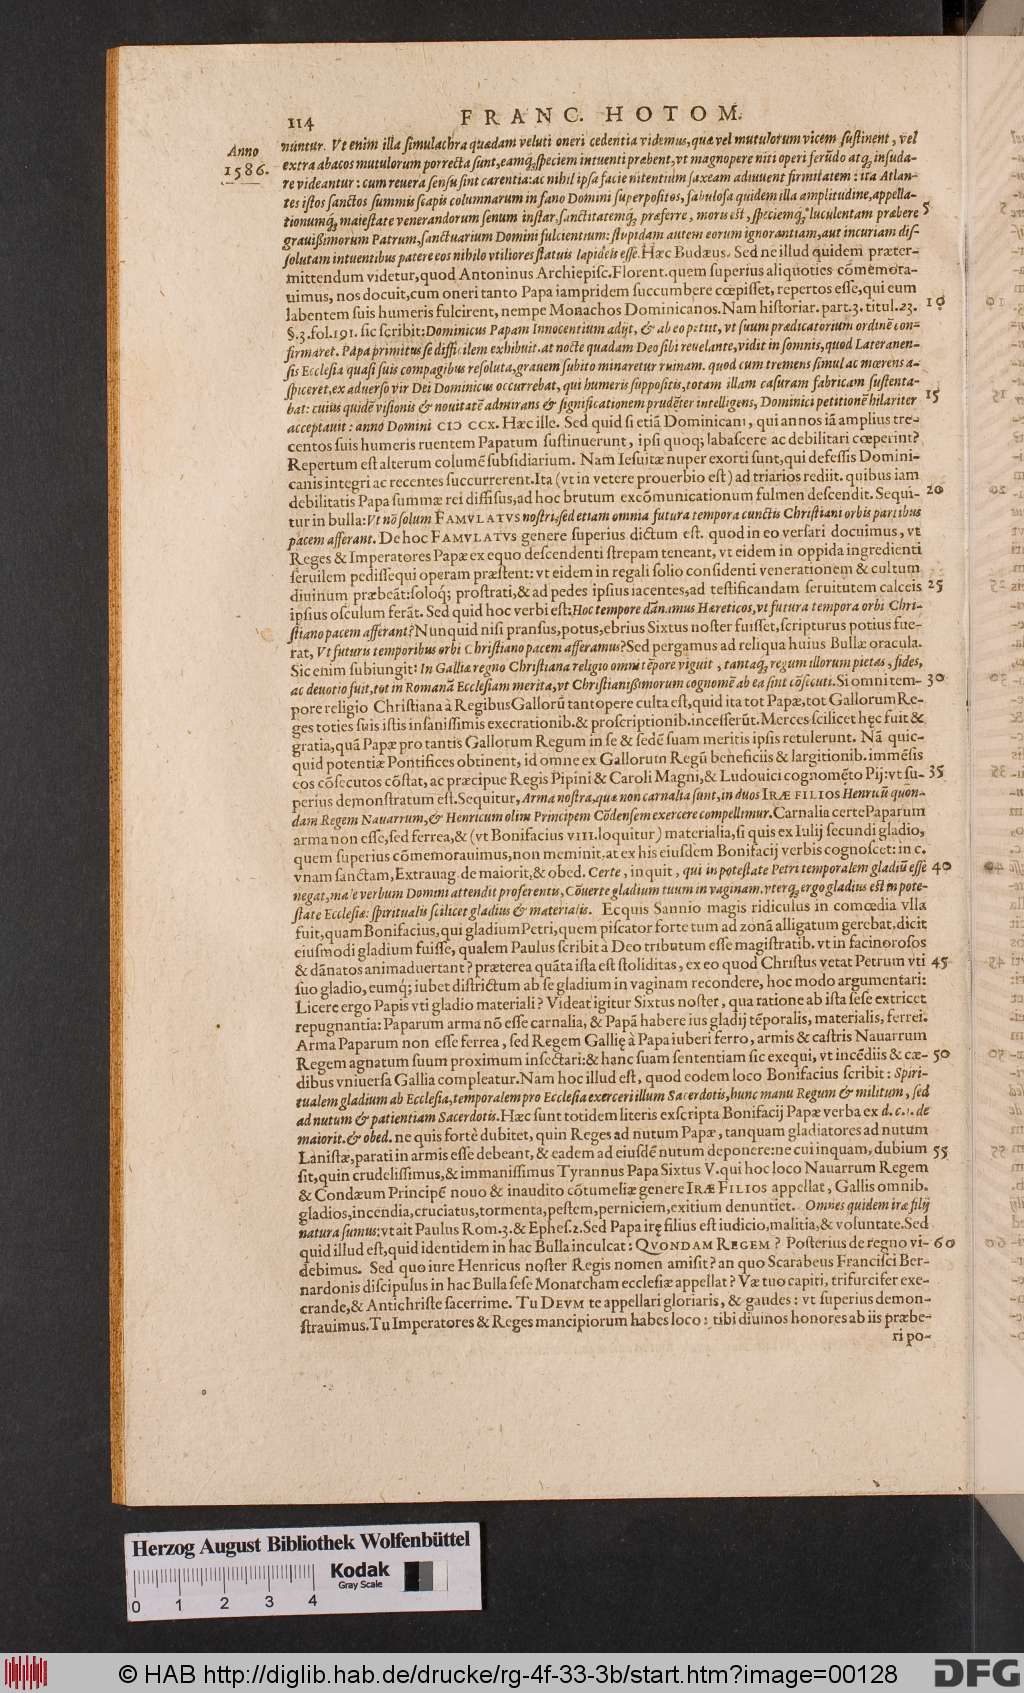 114 FRANC. HOTOM.
Anno
1586.
nuntur. Vt enim illa simulachra quædam veluti oneri cedentia videmus, quæ vel mutulorum vicem sustinent, vel
extra abacos mutulorum porrecta sunt, eamq́; speciem intuenti præbent, vt magnopere niti operi ferũdo atq; insuda-
re videantur: cum reuera sensu sint carentia: ac nihil ipsa facie nitentium saxeam adiuuent firmitatem: ita Atlan-
tes istos sanctos summis scapis columnarum in fano Domini superpositos, fabulosa quidem illa amplitudine, appella-
tionumq́; maiestate venerandorum senum instar, sanctitatemq́; præferre, moris est, speciemq́; luculentam præbere 5
grauißimorum Patrum, sanctuarium Domini fulcientium: stupidam autem eorum ignorantiam, aut incuriam dis-
solutam intuentibus patere eos nihilo vtiliores statuis lapideis esse. Hæc Budæus. Sed ne illud quidem præter-
mittendum videtur, quod Antoninus Archiepisc. Florent. quem superius aliquoties cõmemora-
uimus, nos docuit, cum oneri tanto Papa iampridem succumbere cœpisset, repertos esse, qui eum
labentem suis humeris fulcirent, nempe Monachos Dominicanos. Nam historiar. part. 3. titul. 23. 10
§. 3. fol. 191. sic scribit: Dominicus Papam Innocentium adijt, & ab eo petiit, vt suum prædicatorium ordinẽ con-
firmaret. Papa primitus se difficilem exhibuit. at nocte quadam Deo sibi reuelante, vidit in somnis, quod Lateranen-
sis Ecclesia quasi suis compagibus resoluta, grauem subito minaretur ruinam. quod cum tremens simul ac mœrens a-
spiceret, ex aduerso vir Dei Dominicus occurrebat, qui humeris suppositis, totam illam casuram fabricam sustenta-
bat: cuius quidẽ visionis & nouitatẽ admirans & significationem prudẽter intelligens, Dominici petitionẽ hilariter 15
acceptauit: anno Domini CIↃ CCX. Hæc ille. Sed quid si etiã Dominicani, qui annos iã amplius tre-
centos suis humeris ruentem Papatum sustinuerunt, ipsi quoq; labascere ac debilitari cœperint?
Repertum est alterum columẽ subsidiarium. Nam Iesuitæ nuper exorti sunt, qui defessis Domini-
canis integri ac recentes succurrerent. Ita (vt in vetere prouerbio est) ad triarios rediit. quibus iam
debilitatis Papa summæ rei diffisus, ad hoc brutum excõmunicationum fulmen descendit. Sequi- 20
tur in bulla: Vt nõ solum FAMVLATVS nostri, sed etiam omnia futura tempora cunctis Christiani orbis partibus
pacem afferant. De hoc FAMVLATVS genere superius dictum est. quod in eo versari docuimus, vt
Reges & Imperatores Papæ ex equo descendenti strepam teneant, vt eidem in oppida ingredienti
seruilem pedissequi operam præstent: vt eidem in regali solio considenti venerationem & cultum
diuinum præbeãt: soloq́; prostrati, & ad pedes ipsius iacentes, ad testificandam seruitutem calceis 25
ipsius osculum ferãt. Sed quid hoc verbi est: Hoc tempore dãnamus Hæreticos, vt futura tempora orbi Chri-
stiano pacem afferant? Nunquid nisi pransus, potus, ebrius Sixtus noster fuisset, scripturus potius fue-
rat, Vt futuris temporibus orbi Christiano pacem afferamus? Sed pergamus ad reliqua huius Bullæ oracula.
Sic enim subiungit: In Galliæ regno Christiana religio omni tẽpore viguit, tantaq́; regum illorum pietas, fides,
ac deuotio fuit, tot in Romanã Ecclesiam merita, vt Christianißimorum cognomẽ ab ea sint cõsecuti. Si omni tem- 30
pore religio Christiana à Regibus Gallorũ tantopere culta est, quid ita tot Papæ, tot Gallorum Re-
ges toties suis istis insanissimis execrationib. & proscriptionib. incesserũt. Merces scilicet hęc fuit &
gratia, quã Papæ pro tantis Gallorum Regum in se & sedẽ suam meritis ipsis retulerunt. Nã quic-
quid potentiæ Pontifices obtinent, id omne ex Gallorum Regũ beneficiis & largitionib. immẽsis
eos cõsecutos cõstat, ac præcipue Regis Pipini & Caroli Magni, & Ludouici cognomẽto Pij: vt su- 35
perius demonstratum est. Sequitur, Arma nostra, quæ non carnalia sunt, in duos IRÆ FILIOS Henricũ quon-
dam Regem Nauarrum, & Henricum olim Principem Cõdensem exercere compellimur. Carnalia certe Paparum
arma non esse, sed ferrea, & (vt Bonifacius VIII. loquitur) materialia, si quis ex Iulij secundi gladio,
quem superius cõmemorauimus, non meminit, at ex his eiusdem Bonifacij verbis cognoscet: in c.
vnam sanctam, Extrauag. de maiorit, & obed. Certe, inquit, qui in potestate Petri temporalem gladiũ esse 40
negat, male verbum Domini attendit proferentis, Cõuerte gladium tuum in vaginam. vterq́; ergo gladius est in pote-
state Ecclesiæ: spiritualis scilicet gladius & materialis. Ecquis Sannio magis ridiculus in comœdia vlla
fuit, quam Bonifacius, qui gladium Petri, quem piscator forte tum ad zonã alligatum gerebat, dicit
eiusmodi gladium fuisse, qualem Paulus scribit à Deo tributum esse magistratib. vt in facinorosos
& dãnatos animaduertant? præterea quãta ista est stoliditas, ex eo quod Christus vetat Petrum vti 45
suo gladio, eumq́; iubet districtum ab se gladium in vaginam recondere, hoc modo argumentari:
Licere ergo Papis vti gladio materiali? Videat igitur Sixtus noster, qua ratione ab ista sese extricet
repugnantia: Paparum arma nõ esse carnalia, & Papã habere ius gladij tẽporalis, materialis, ferrei.
Arma Paparum non esse ferrea, sed Regem Gallię à Papa iuberi ferro, armis & castris Nauarrum
Regem agnatum suum proximum insectari: & hanc suam sententiam sic exequi, vt incẽdiis & cæ- 50
dibus vniuersa Gallia compleatur. Nam hoc illud est, quod eodem loco Bonifacius scribit: Spiri-
tualem gladium ab Ecclesia, temporalem pro Ecclesia exerceri illum Sacerdotis, hunc manu Regum & militum, sed
ad nutum & patientiam Sacerdotis. Hæc sunt totidem literis exscripta Bonifacij Papæ verba ex d. c. 1. de
maiorit. & obed. ne quis fortè dubitet, quin Reges ad nutum Papæ, tanquam gladiatores ad nutum
Lanistæ, parati in armis esse debeant, & eadem ad eiusdẽ nutum deponere: ne cui inquam, dubium 55
sit, quin crudelissimus, & immanissimus Tyrannus Papa Sixtus V. qui hoc loco Nauarrum Regem
& Condæum Principẽ nouo & inaudito cõtumeliæ genere IRÆ FILIOS appellat, Gallis omnib.
gladios, incendia, cruciatus, tormenta, pestem, perniciem, exitium denuntiet. Omnes quidem iræ filij
natura sumus: vt ait Paulus Rom. 3. & Ephes. 2. Sed Papa irę filius est iudicio, malitia, & voluntate. Sed
quid illud est, quid identidem in hac Bulla inculcat: QVONDAM REGEM? Posterius de regno vi- 60
debimus. Sed quo iure Henricus noster Regis nomen amisit? an quo Scarabeus Francisci Ber-
nardonis discipulus in hac Bulla sese Monarcham ecclesiæ appellat? Væ tuo capiti, trifurcifer exe-
crande, & Antichriste sacerrime. Tu DEVM te appellari gloriaris, & gaudes: vt superius demon-
strauimus. Tu Imperatores & Reges mancipiorum habes loco: tibi diuinos honores ab iis præbe-
ri po-
Herzog August Bibliothek Wolfenbüttel
Kodak
Gray Scale
0 1 2 3 4
© HAB http://diglib.hab.de/drucke/rg-4f-33-3b/start.htm?image=00128
DFG